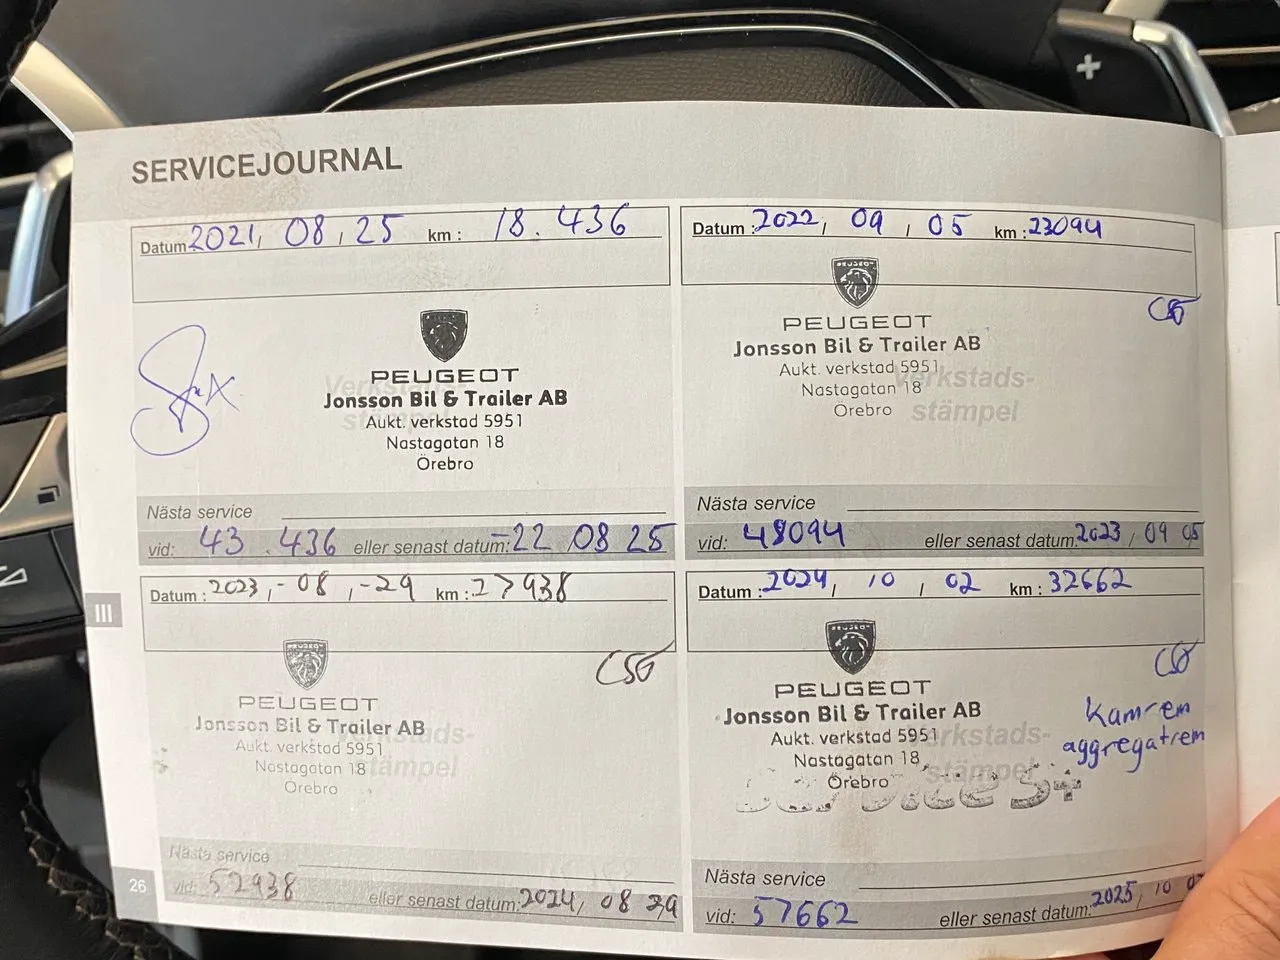 SERVICEJOURNAL
Datum 2021, 08, 25 km: 18.436
PEUGEOT
Jonsson Bil & Trailer AB
Verkstads-
stämpel
Aukt. verkstad 5951
Nastagatan 18
Örebro
Nästa service
vid: 43.436 eller senast datum: -22 08 25
Datum: 2022, 09, 05 km: 23094
PEUGEOT
Jonsson Bil & Trailer AB
Aukt. verkstad 5951
Verkstads-
Nastagatan 18
stämpel
Örebro
Nästa service
vid: 48094 eller senast datum: 2023, 09 05
Datum: 2023,-08,-29 km: 27938
III
PEUGEOT
Jonsson Bil & Trailer AB
Verkstads-
Aukt. verkstad 5951
Nastagatan 18
stämpel
Örebro
Nästa service
vid: 52938 eller senast datum: 2024, 08 29
Datum: 2024, 10, 02 km: 32662
PEUGEOT
Jonsson Bil & Trailer AB
Kamrem
aggregatrem
Aukt. verkstad 5951
Verkstads-
Nastagatan 18
stämpel
Örebro
Nästa service
vid: 57662 eller senast datum: 2025, 10
26